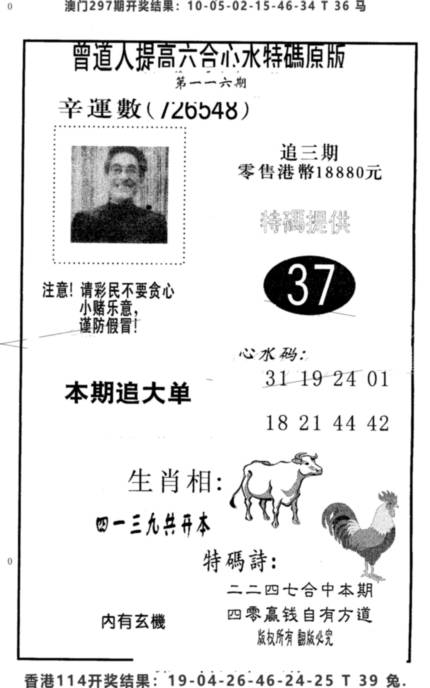 澳门297期开奖结果：10-05-02-15-46-34 T 36 马
曾道人提高六合心水特碼原版
第一一六期
辛運數(726548)
追三期
零售港幣18880元
特碼提供
37
注意！请彩民不要贪心
小赌乐意，
谨防假冒！
心水码：
31 19 24 01
本期追大单
18 21 44 42
生肖相：
四一三九共开本
特碼詩：
二二四七合中本期
四零赢钱自有方道
内有玄機
版权所有 翻版必究
香港114开奖结果：19-04-26-46-24-25 T 39 兔.